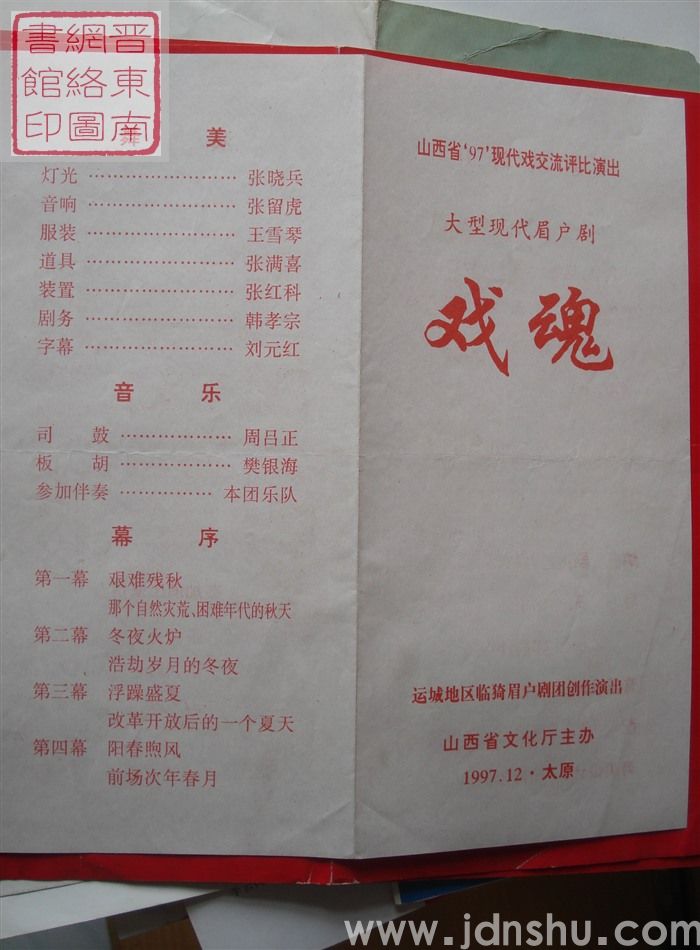 晋南东
網络圖
書館印
舞 美
灯光 ……………………… 张晓兵
音响 ……………………… 张留虎
服装 ……………………… 王雪琴
道具 ……………………… 张满喜
装置 ……………………… 张红科
剧务 ……………………… 韩孝宗
字幕 ……………………… 刘元红
音 乐
司 鼓 ……………… 周吕正
板 胡 ……………… 樊银海
参加伴奏 …………… 本团乐队
幕 序
第一幕 艰难残秋
那个自然灾荒、困难年代的秋天
第二幕 冬夜火炉
浩劫岁月的冬夜
第三幕 浮躁盛夏
改革开放后的一个夏天
第四幕 阳春煦风
前场次年春月
山西省‘97’现代戏交流评比演出
大型现代眉户剧
戏魂
运城地区临猗眉户剧团创作演出
山西省文化厅主办
1997.12·太原
www.jdnshu.com